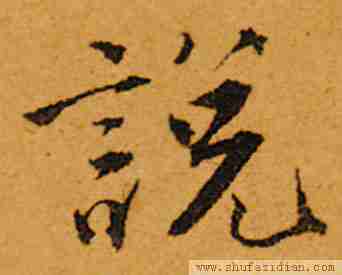 說
www.shufazidian.com